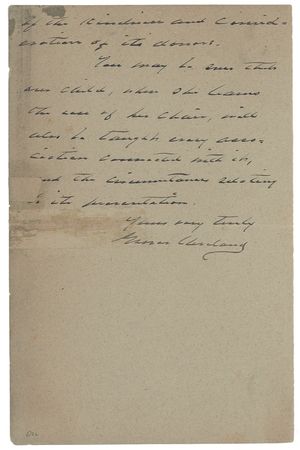 of the kindness and consid-
eration of its donors.
You may be sure that
our child, when she learns
the use of her chair, will
also be taught every asso-
ciation connected with it,
and the circumstances relating
to its presentation.
Yours very truly
Grover Cleveland